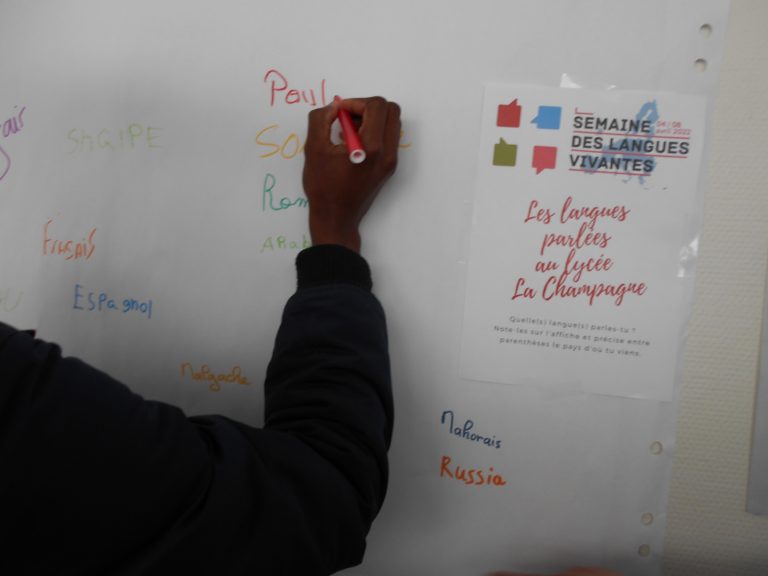 Poul
SHQIPE
Français
Espagnol
Malgache
SEMAINE
04 / 08
avril 2022
DES LANGUES
VIVANTES
Les langues
parlées
au lycée
La Champagne
Quelle(s) langue(s) parles-tu ?
Note-les sur l'affiche et précise entre
parenthèses le pays d'où tu viens.
Mahorais
Russia